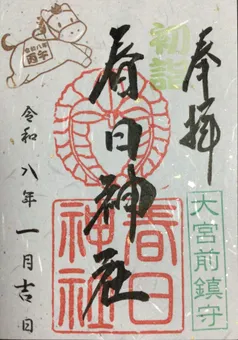 奉拝
初詣
春日神社
春日神社
大宮前鎮守
令和八年
丙午
令和八年一月吉日